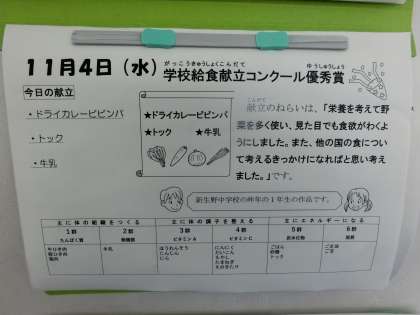 がっこうきゅうしょくこんだて ゆうしゅうしょう
11月4日（水） 学校給食献立コンクール優秀賞
今日の献立
・ドライカレービビンバ
・トック
・牛乳
★ドライカレービビンバ
★トック ★牛乳
こんだて
献立のねらいは、「栄養を考えて野
菜を多く使い、見た目でも食欲がわくよ
うにしました。また、他の国の食につい
て考えるきっかけになればと思い考え
ました。」です。
新生野中学校の昨年の1年生の作品です。
主に体の組織をつくる 主に体の調子を整える 主にエネルギーになる
1群 2群 3群 4群 5群 6群
たんぱく質 無機質 ビタミンA ビタミンC 炭水化物 脂質
牛ひき肉 牛乳 ほうれんそう にんにく ごはん ごま油
豚ひき肉 にんじん だいこん 砂糖 ごま
鶏肉 にら もやし トック
たまねぎ
えのきたけ